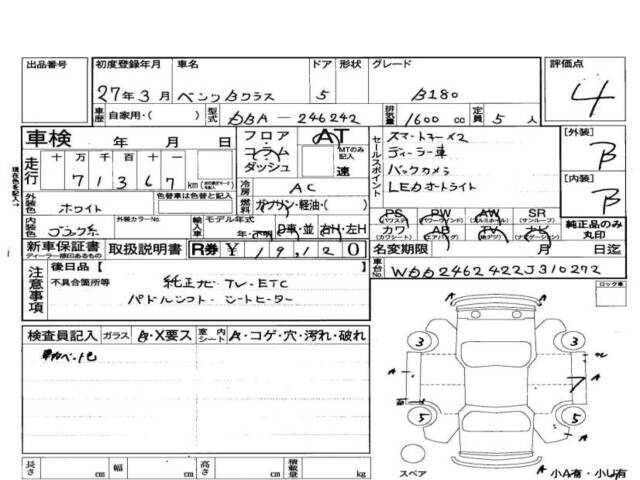 出品番号 初度登録年月 車名 ドア 形状 グレード 評価点
27年3月 ベンツBクラス 5 B180 4
車歴 自家用・( ) 型式 DBA-246242 排気量 1600 cc 定員 5 人
車検 年 月 日 フロア コラム ダッシュ AT MTのみ記入 速
セールスポイント スマートキー×2
ディーラー車
バックカメラ
LEDオートライト
[外装] B
[内装] B
走行 十 万 千 百 十
7 1 3 6 7 km
冷房 AC
外装色 ホワイト 色替車は色替と記入 燃料 ガソリン・軽油・( )
内装色 ブラック系 外装カラーNo. 輸入車 モデル年式 年・不明 D車・並 右H・左H
PS (パワステ) PW (パワーウィンド) AW (アルミホイル) SR (サンルーフ)
カワ (カワシート) AB (エアバッグ) TV (地デジ) ナビ (ナビゲーション)
純正品のみ丸印
新車保証書 ディーラー捺印あるもの 取扱説明書 R券 ¥ 19,120 名変期限 月 日迄
車台No. WDD2462422J310272
ロック車
注意事項 後日品【
不具合箇所等 純正ナビ・TV・ETC
パドルシフト・シートヒーター
検査員記入 ガラス B・X要ス 室内シート A・コゲ・穴・汚れ・破れ
3 3
A A
7
5 5
A A
A
スペア A 小A有・小U有
長さ cm 幅 cm 高さ cm 積載量 kg
現在色を記入→